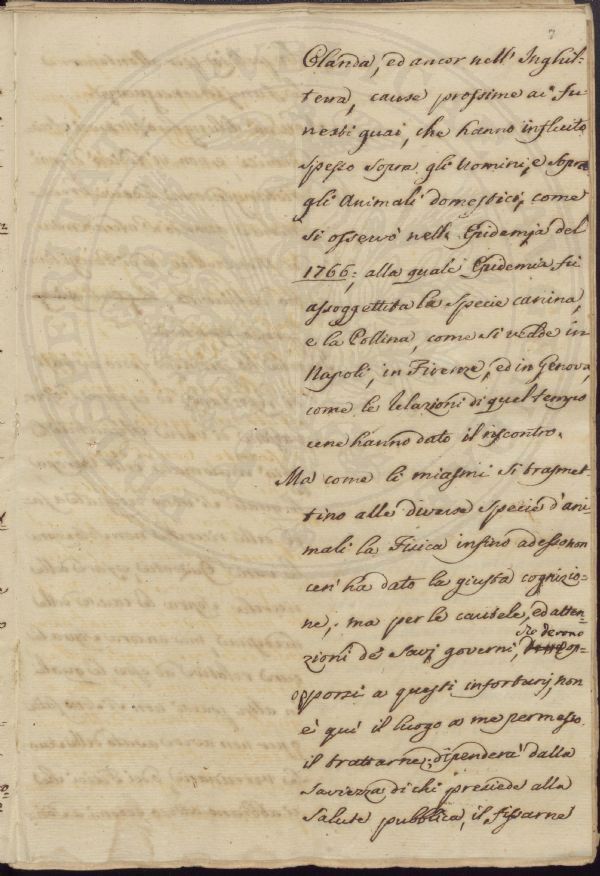 7
Olanda, ed ancor nell' Inghil-
terra, cause prossime ai fu
nesti guai, che hanno influito
spesso sopra gli Uomini, e sopra
gli Animali domestici, come
si osservò nell' Epidemia del
1766; alla quale Epidemia fù
assoggettita la specie canina,
e la Pollina, come si vedde in
Napoli, in Firenze, ed in Genova,
come le Relazioni di quel tempo
cene hanno dato il riscontro.
Ma come li miasmi si trasmet
tino alle diverse specie d'ani
mali la Fisica insino adesso non
cen' ha dato la giusta cognizio=
ne; ma per le cautele, ed atten=
zioni de' Savj governi, che devono op=
porsi a questi infortunj, non
è qui il luogo a me permesso
il trattarne; dipenderà dalla
saviezza di chi presiede alla
salute pubblica, il fissarne